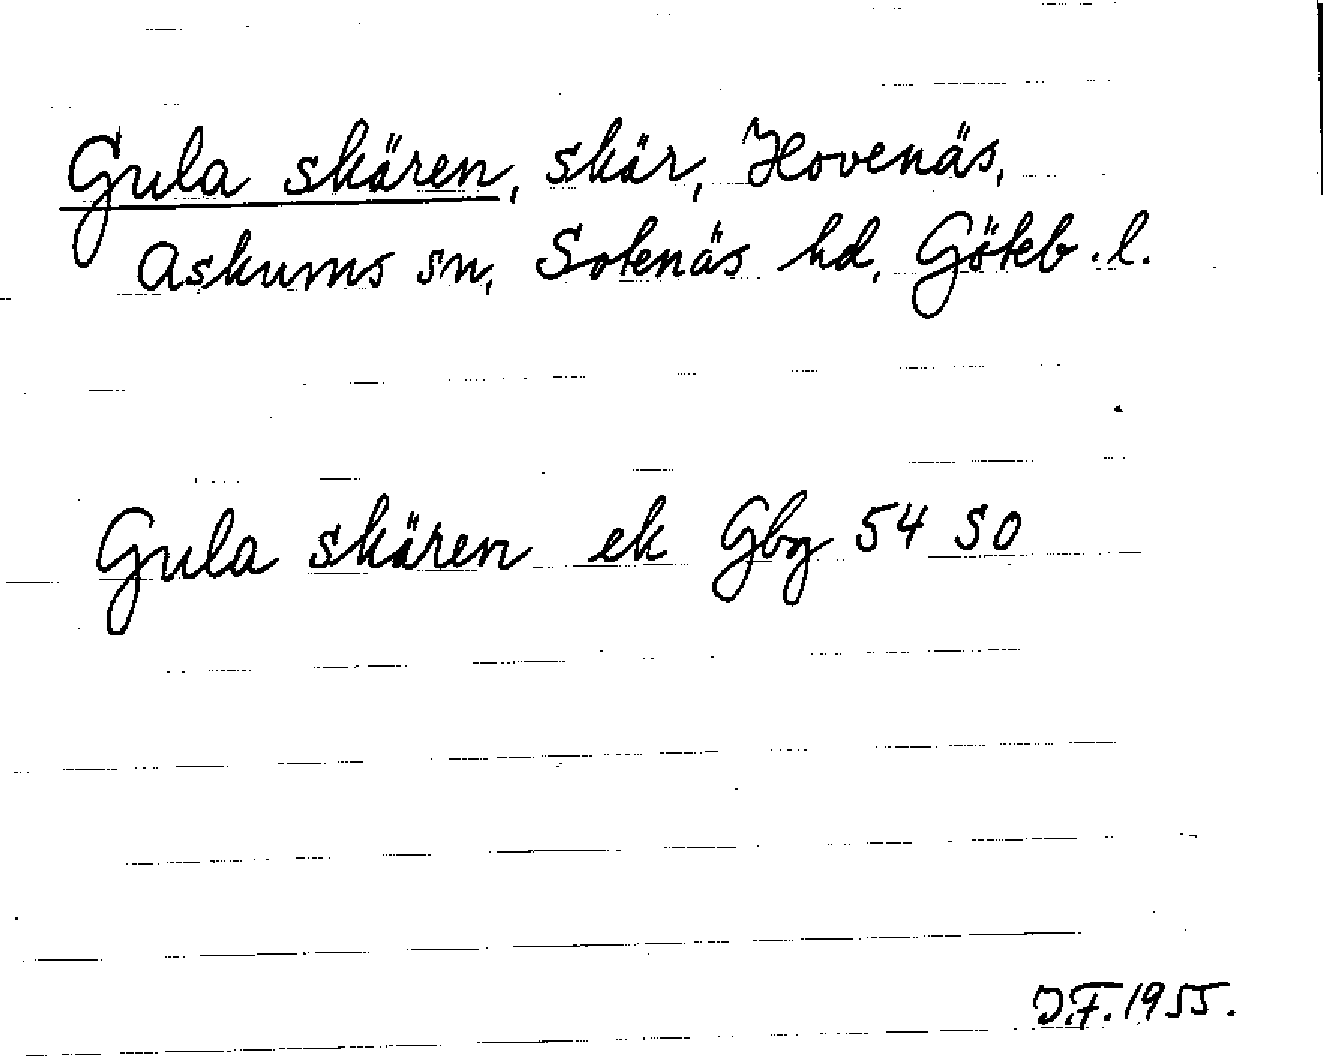 Gula skären, skär, Hovenäs,
Askums sn, Sotenäs hd, Göteb. l.
Gula skären ek Gbg 54 SO
J.F. 1955.